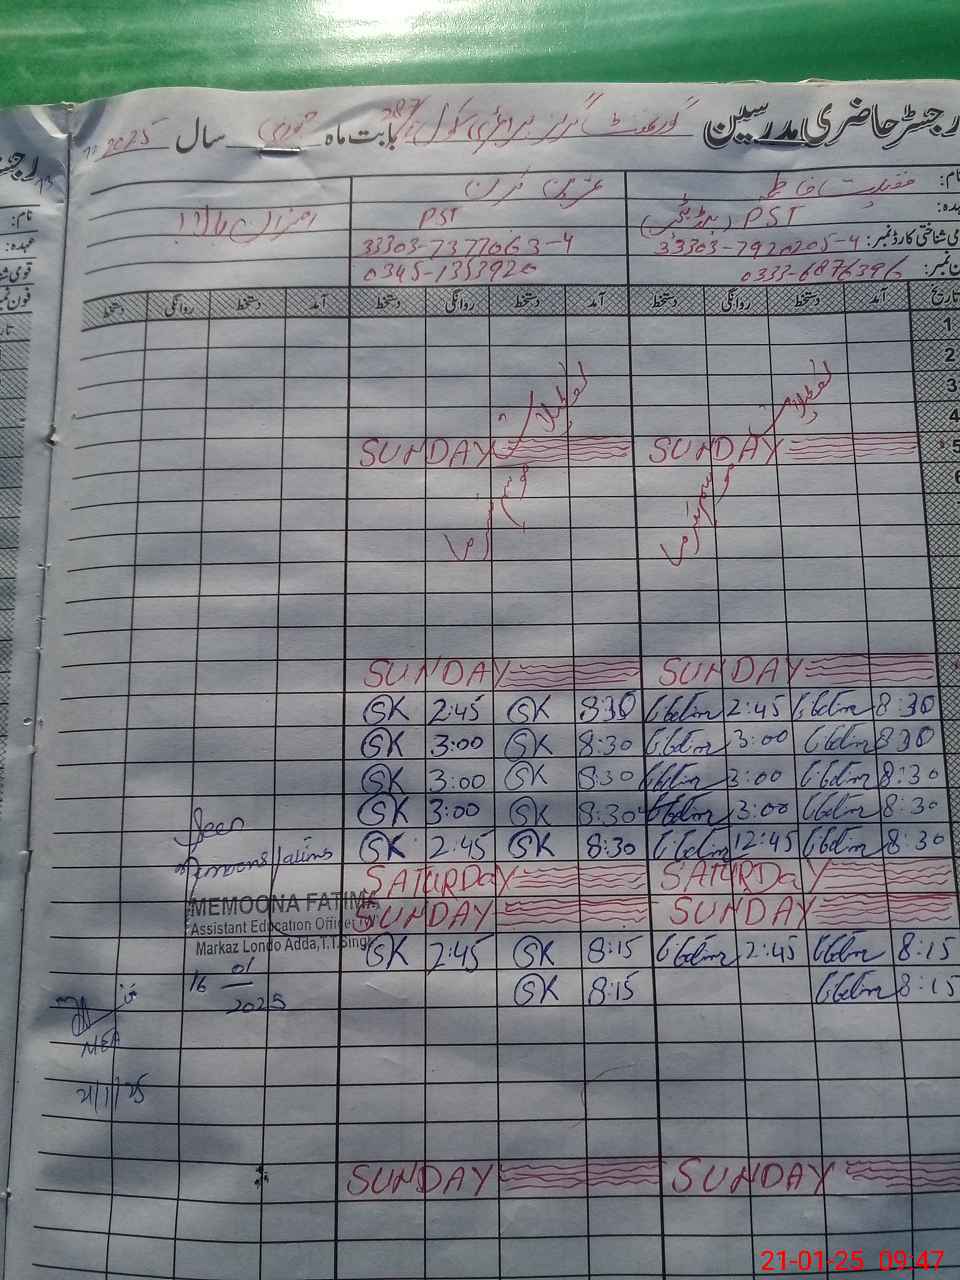 رجسٹر حاضری مدرسین گورنمنٹ گرلز پرائمری سکول 287 بابت ماہ جنوری سال 2025
نام:
عہدہ: PST PST
قومی شناختی کارڈ نمبر: 33303-7920205-4 33303-7377063-4
فون نمبر: 0333-6876396 0345-1353920
تاریخ آمد دستخط روانگی دستخط آمد دستخط روانگی دستخط آمد دستخط روانگی دستخط
1
2
3
4
5 SUNDAY SUNDAY
6
تعطیلات تعطیلات
موسم سرما موسم سرما
SUNDAY SUNDAY
GK 2:45 GK 8:30 2:45 8:30
GK 3:00 GK 8:30 3:00 8:30
GK 3:00 GK 8:30 3:00 8:30
GK 3:00 GK 8:30 3:00 8:30
GK 2:45 GK 8:30 12:45 8:30
SATURDAY SATURDAY
SUNDAY SUNDAY
GK 2:45 GK 8:15 2:45 8:15
GK 8:15 8:15
SUNDAY SUNDAY
Seen
Memoona Fatima
MEMOONA FATIMA
Assistant Education Officer (W)
Markaz Londo Adda, T.T.Singh
16 01 2025
MEA
21/1/25
21-01-25 09:47